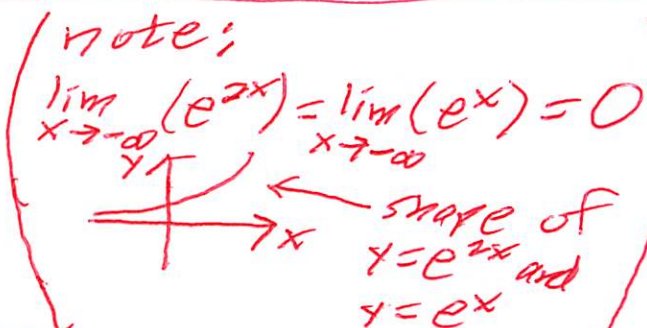 note:
lim (e^2x) = lim (e^x) = 0
x→-∞ x→-∞
y
x
shape of
y=e^2x and
y=e^x